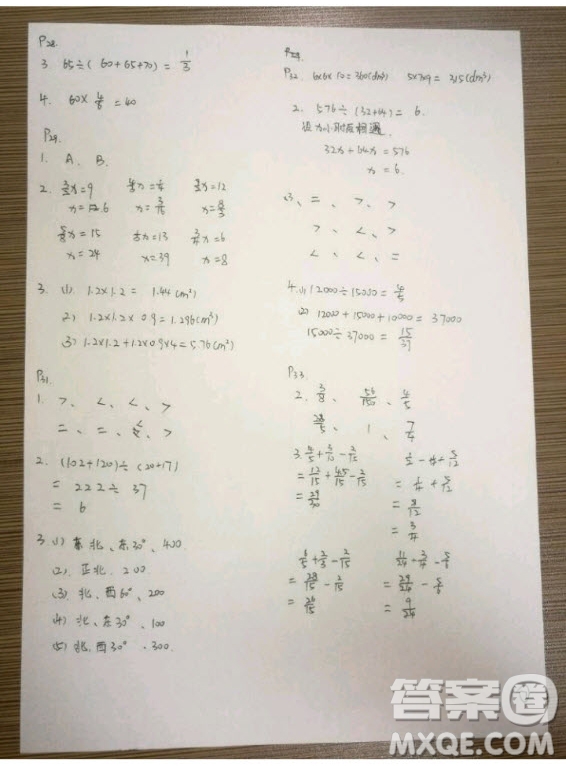 P28.
3. 65÷(60+65+70)=1/3
4. 60×4/6=40
P29.
1. A、B.
2. 3/2x=9 4/5x=1/4 3/2x=12
x=6 x=3/15 x=8/3
5/8x=15 1/3x=13 3/4x=6
x=24 x=39 x=8
3. (1) 1.2×1.2=1.44(m²)
(2) 1.2×1.2×0.9=1.296(m³)
(3) 1.2×1.2+1.2×0.9×4=5.76(m²)
P31.
1. >、<、<、>
=、=、<、>
2. (102+120)÷(20+17)
=222÷37
=6
3 (1) 东北、东30°、400
(2). 正北、200
(3) 北、西60°、200
(4) 北、东30°、100
(5) 北、西30°、300.
P32 6×6×10=360(dm³) 5×7×9=315(dm³)
2. 576÷(32+64)=6.
设x小时后相遇.
32x+64x=576
x=6.
3、=、>、>
>、<、>
<、<、=
4.(1) 12000÷15000=4/5
(2) 12000+15000+10000=37000
15000÷37000=15/37
P33.
2. 3/8、56/150、4/5
28/5、1、7/4
3. 4/5+3/10-2/15 1/2-1/4+5/12
=12/15+4.5/15-2/15 =1/4+5/12
=29/30 =8/12
=3/4
6/5+2/3-2/15 11/24-3/4-5/6
=28/15-2/15 =29/24-5/6
=26/15 =9/24
答案圈
MXQE.COM